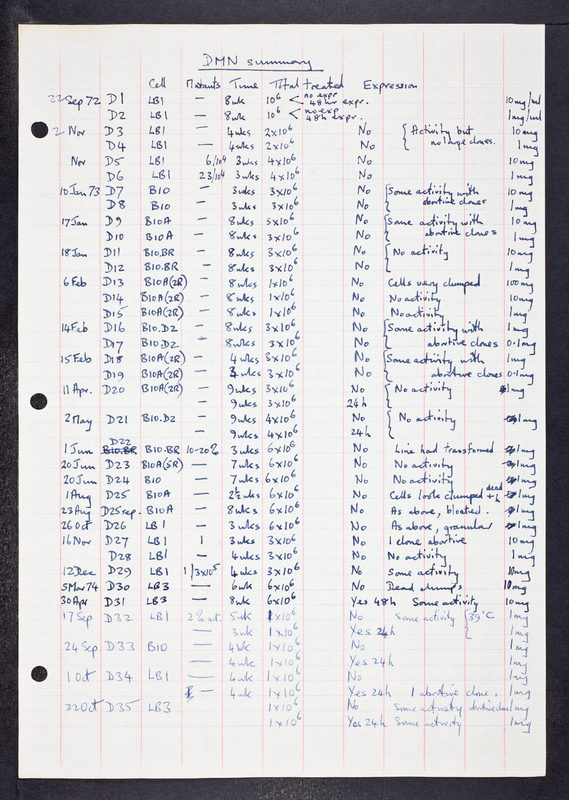 DMN summary
Cell Mutants Time Total treated Expression
22 Sep 72 D1 LB1 — 8wk 10⁶ < no expr. 48hr expr. 10mg/ml
D2 LB1 — 8wk 10⁶ < no exp. 48h exp. 1mg/ml
2 Nov D3 LB1 — 4wks 2×10⁶ No { Activity but 10mg
D4 LB1 — 4wks 2×10⁶ No no large clones. 1mg
Nov D5 LB1 6/10⁶ 3wks 4×10⁶ No 10mg
D6 LB1 23/10⁶ 3wks 4×10⁶ No 1mg
10 Jan 73 D7 B10 — 3wks 3×10⁶ No { Some activity with 10mg
D8 B10 — 3wks 3×10⁶ No abortive clones 1mg
17 Jan D9 B10A — 8wks 5×10⁶ No { Some activity with 10mg
D10 B10A — 8wks 3×10⁶ No abortive clones 1mg
18 Jan D11 B10.BR — 8wks 3×10⁶ No { No activity 10mg
D12 B10.BR — 8wks 3×10⁶ No 1mg
6 Feb D13 B10A(2R) — 8wks 1×10⁶ No Cells very clumped 100mg
D14 B10A(2R) — 8wks 1×10⁶ No No activity 10mg
D15 B10A(2R) — 8wks 1×10⁶ No No activity 1mg
14 Feb D16 B10.D2 — 8wks 3×10⁶ No { Some activity with 1mg
D17 B10.D2 — 8wks 3×10⁶ No abortive clones 0.1mg
15 Feb D18 B10A(2R) — 4wks 3×10⁶ No { Some activity with 1mg
D19 B10A(2R) — wks 3×10⁶ No abortive clones 0.1mg
11 Apr. D20 B10A(2R) — 9wks 3×10⁶ No { No activity 1mg
— 9wks 3×10⁶ 24h
2 May D21 B10.D2 — 9wks 4×10⁶ No { No activity 1mg
— 9wks 4×10⁶ 24h
1 Jun D22 B10.BR 10-20% 3wks 6×10⁶ No Line had transformed 1mg
20 Jun D23 B10A(5R) — 7wks 6×10⁶ No No activity 1mg
20 Jun D24 B10 — 7wks 6×10⁶ No No activity 1mg
1 Aug D25 B10A — 2½wks 6×10⁶ No Cells look clumped + dead 1mg
23 Aug D25 rep. B10A — 8wks 6×10⁶ No As above, bloated. 1mg
26 Oct D26 LB1 — 3wks 6×10⁶ No As above, granular 1mg
16 Nov D27 LB1 1 3wks 3×10⁶ No 1 clone abortive 10mg
D28 LB1 — 4wks 3×10⁶ No No activity 1mg
12 Dec D29 LB1 1/3×10⁵ 4wks 3×10⁶ No Some activity 10mg
5 Mar 74 D30 LB3 — 6wk 6×10⁶ No Dead clumps 10mg
30 Apr D31 LB3 — 8wk 6×10⁶ Yes 48h Some activity 10mg
17 Sep D32 LB1 2% at. 5wk 1×10⁶ No Some activity { 39°C 1mg
— 3wk 1×10⁶ Yes 24h 1mg
24 Sep D33 B10 — 4wk 1×10⁶ No 1mg
— 4wk 1×10⁶ Yes 24h 1mg
1 Oct D34 LB1 — 4wk 1×10⁶ No 1mg
— 4wk 1×10⁶ Yes 24h 1 abortive clone. 1mg
22 Oct D35 LB3 1×10⁶ No Some activity abortive clone 1mg
1×10⁶ Yes 24h Some activity 1mg